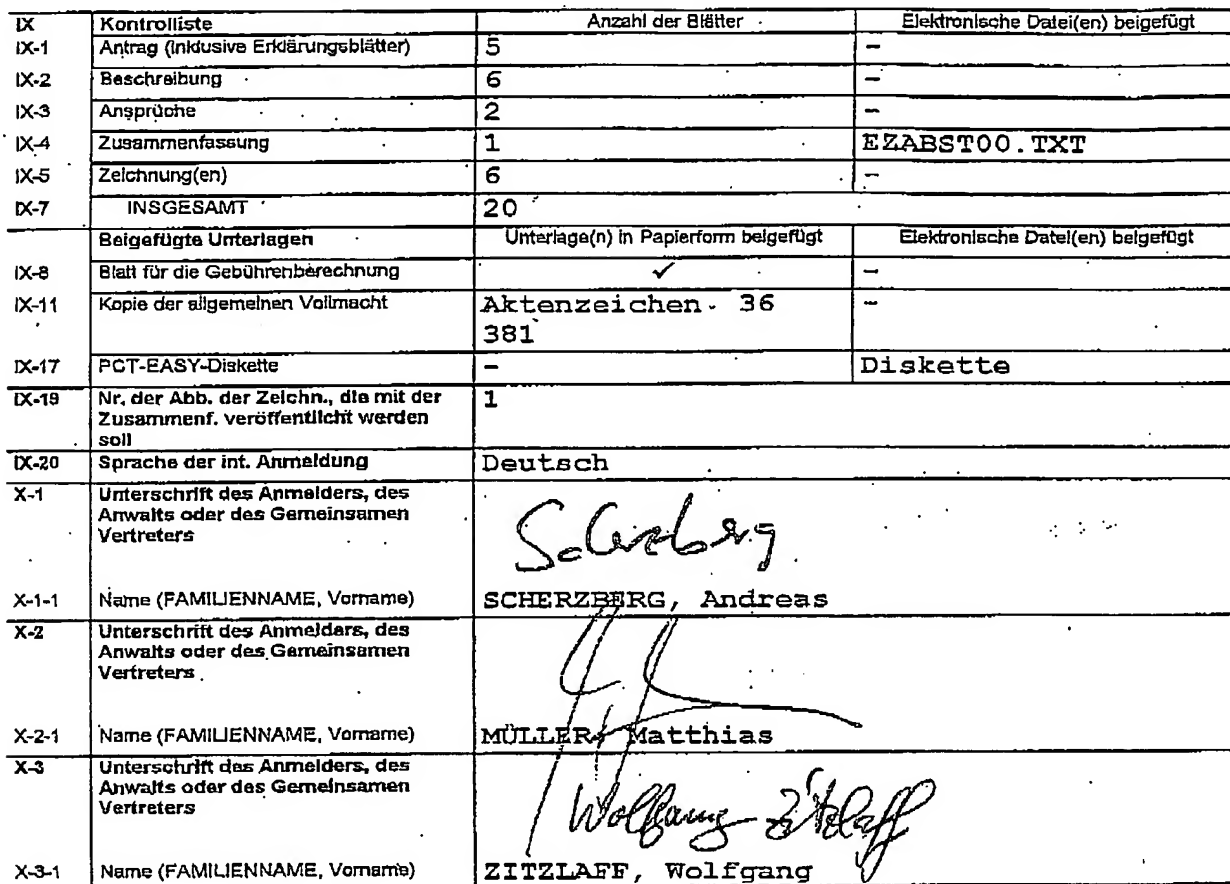 IX Kontrolliste Anzahl der Blätter Elektronische Datei(en) beigefügt
IX-1 Antrag (inklusive Erklärungsblätter) 5 -
IX-2 Beschreibung 6 -
IX-3 Ansprüche 2 -
IX-4 Zusammenfassung 1 EZABST00.TXT
IX-5 Zeichnung(en) 6 -
IX-7 INSGESAMT 20
Beigefügte Unterlagen Unterlage(n) in Papierform beigefügt Elektronische Datei(en) beigefügt
IX-8 Blatt für die Gebührenberechnung ✓ -
IX-11 Kopie der allgemeinen Vollmacht Aktenzeichen 36 -
381
IX-17 PCT-EASY-Diskette - Diskette
IX-19 Nr. der Abb. der Zeichn., die mit der 1
Zusammenf. veröffentlicht werden
soll
IX-20 Sprache der int. Anmeldung Deutsch
X-1 Unterschrift des Anmelders, des
Anwalts oder des Gemeinsamen
Vertreters
Scherzberg
X-1-1 Name (FAMILIENNAME, Vorname) SCHERZBERG, Andreas
X-2 Unterschrift des Anmelders, des
Anwalts oder des Gemeinsamen
Vertreters
X-2-1 Name (FAMILIENNAME, Vorname) MÜLLER, Matthias
X-3 Unterschrift des Anmelders, des
Anwalts oder des Gemeinsamen
Vertreters
Wolfgang Zitzlaff
X-3-1 Name (FAMILIENNAME, Vorname) ZITZLAFF, Wolfgang